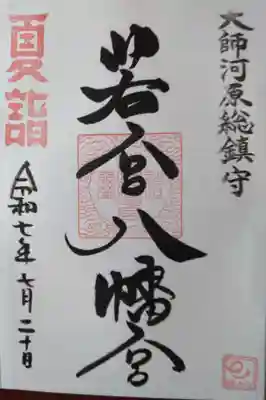 大師河原総鎮守
若宮八幡宮
夏詣
令和七年七月二十日